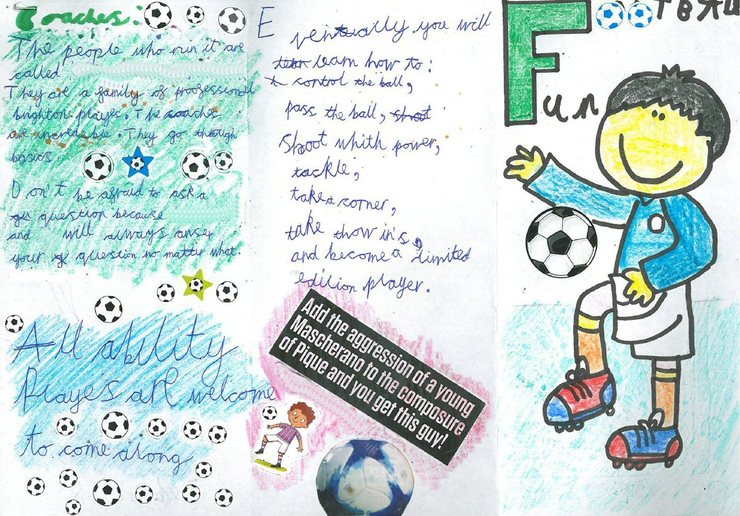 Coaches:
The people who run it are
called
They are a family of proofessional
brighton players. The coaches
are increadible. They go through
basics.
Don't be afraid to ask a
question because
and will always anser
your question no matter what.
All ability
Players are welcome
to come along
Eventually you will
learn how to:
control the ball,
pass the ball,
Shoot whith power,
tackle,
take a corner,
take thow in's,
and become a limited
edition player.
Add the aggression of a young
Mascherano to the composure
of Pique and you get this guy!
FOOTBALL
Fun